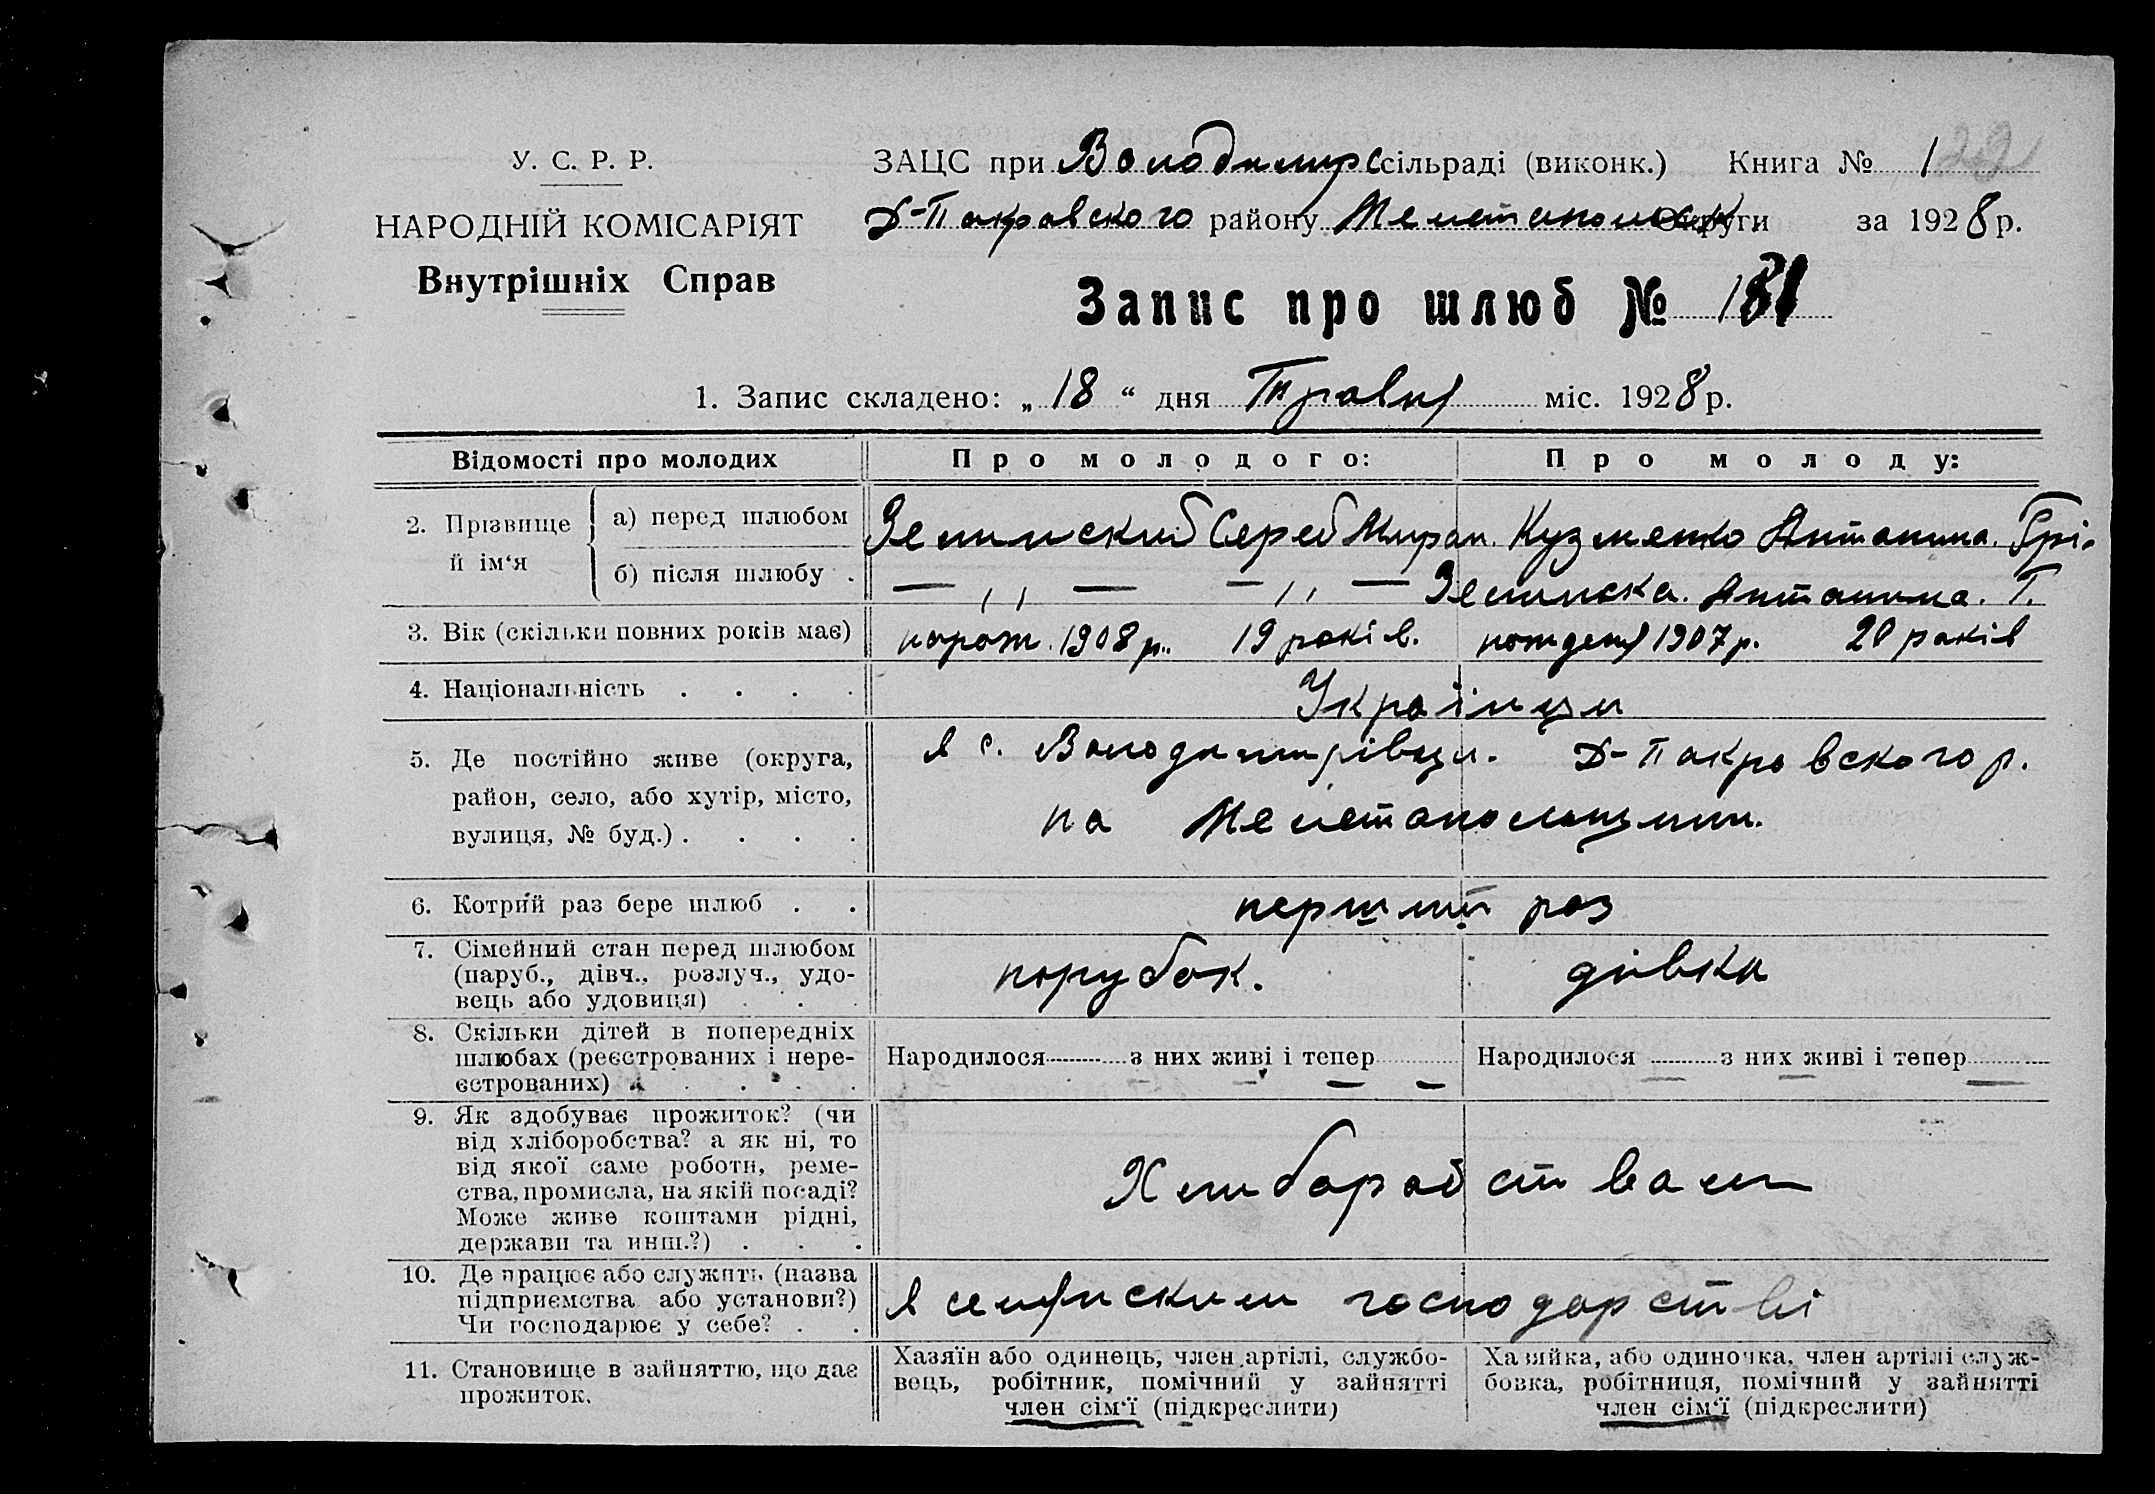 У. С. Р. Р.
НАРОДНІЙ КОМІСАРІЯТ
Внутрішніх Справ
ЗАЦС при Володимирс сільраді (виконк.) Книга № 1
Д-Покровского району Мелетопольск округи за 1928 р.
Запис про шлюб № 181
1. Запис складено: „ 18 “ дня Травня міс. 1928 р.
Відомості про молодих
Про молодого:
Про молоду:
2. Прізвище й ім‘я
а) перед шлюбом
Сергей Мирон. Кузменко Антонина. Грі.
б) після шлюбу .
— ,, — — ,, — Антонина. Г.
3. Вік (скільки повних років має)
норож. 1908 р. 19 років.
1907 р. 20 років
4. Національність . . . .
Українци
5. Де постійно живе (округа,
район, село, або хутір, місто,
вулиця, № буд.) . . . .
в с. Володимирівци. Д-Покровского р.
на Мелетопольщини.
6. Котрий раз бере шлюб . .
перший раз
7. Сімейний стан перед шлюбом
(паруб., дівч., розлуч., удо-
вець або удовиця) . . .
порубок.
дівка
8. Скільки дітей в попередніх
шлюбах (реєстрованих і нере-
єстрованих) . . . .
Народилося — з них живі і тепер — —
Народилося — з них живі і тепер —
9. Як здобуває прожиток? (чи
від хліборобства? а як ні, то
від якої саме роботи, реме-
ства, промисла, на якій посаді?
Може живе коштами рідні,
держави та инш.?) . . .
Хлиборобством
10. Де працює або служить (назва
підприємства або установи?)
Чи господарює у себе? . .
в селянским господарстві
11. Становище в зайняттю, що дає
прожиток.
Хазяїн або одинець, член артілі, службо-
вець, робітник, помічний у зайнятті
член сім‘ї (підкреслити)
Хазяйка, або одиночка, член артілі служ-
бовка, робітниця, помічний у зайнятті
член сім‘ї (підкреслити)